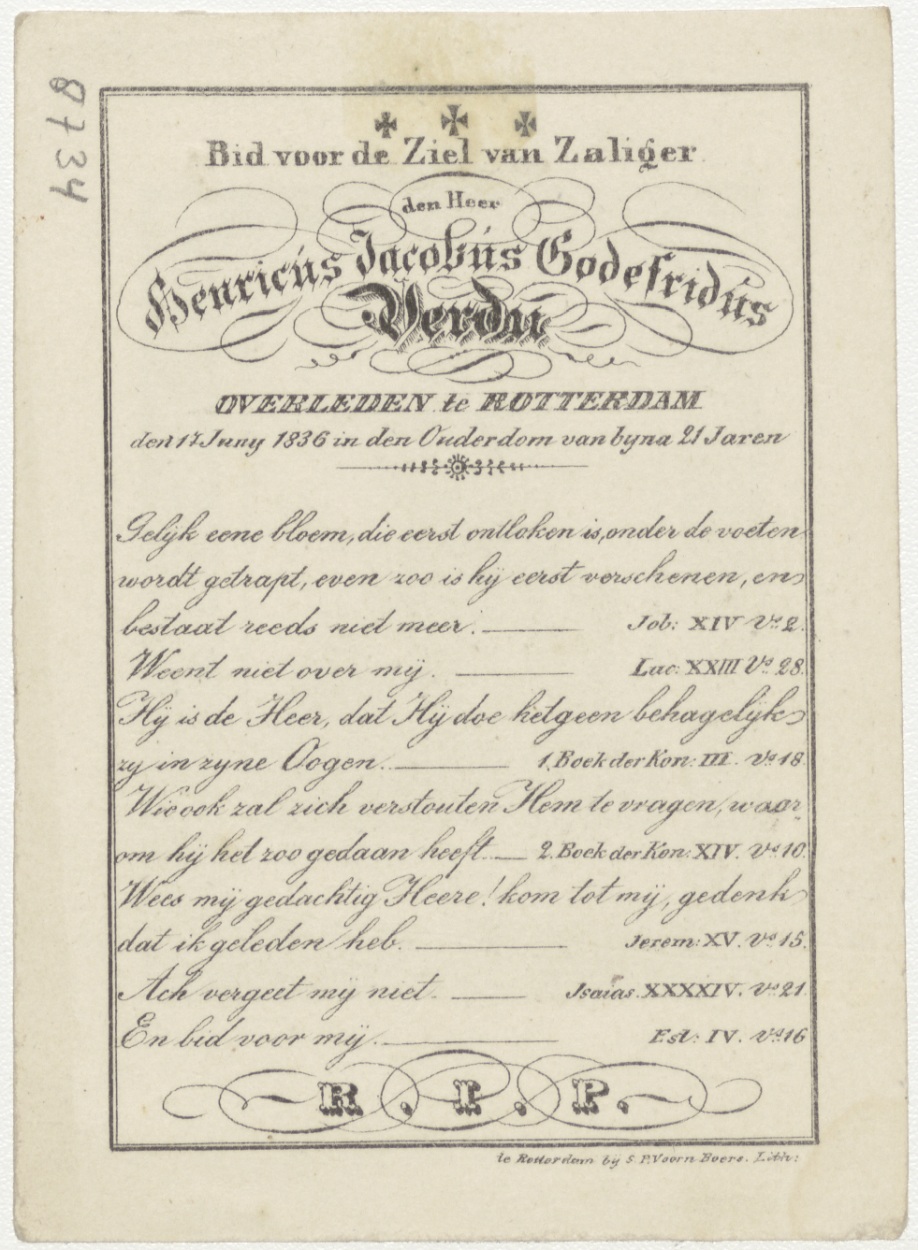 8734
Bid voor de Ziel van Zaliger
den Heer
Henricús Jacobús Godefridús
Verdu
OVERLEDEN te ROTTERDAM
den 17 Juny 1836 in den Ouderdom van byna 21 Jaren
Gelijk eene bloem, die eerst ontloken is, onder de voeten
wordt getrapt, even zoo is hij eerst verschenen, en
bestaat reeds niet meer. Job: XIV Vs. 2.
Weent niet over mij. Luc: XXIII Vs. 28.
Hij is de Heer, dat Hij doe hetgeen behagelijk
zy in zyne Oogen. 1. Boek der Kon: III. Vs. 18.
Wie ook zal zich verstouten Hem te vragen, waar-
om hij het zoo gedaan heeft. 2. Boek der Kon: XIV. Vs. 10.
Wees mij gedachtig Heere! kom tot mij, gedenk
dat ik geleden heb. Jerem: XV. Vs. 15.
Ach vergeet mij niet. Jsaias. XXXXIV. Vs. 21.
En bid voor mij. Est: IV. Vs. 16
R. I. P.
te Rotterdam bij S. P. Voorn Boers. Lith: